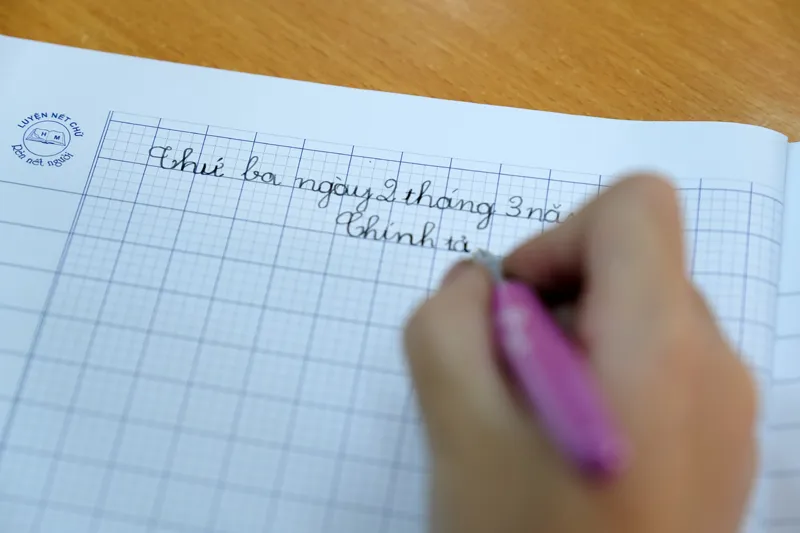 LUYỆN NÉT CHỮ
H M
Rèn nết người
Thứ ba ngày 2 tháng 3 nă
Chính tả